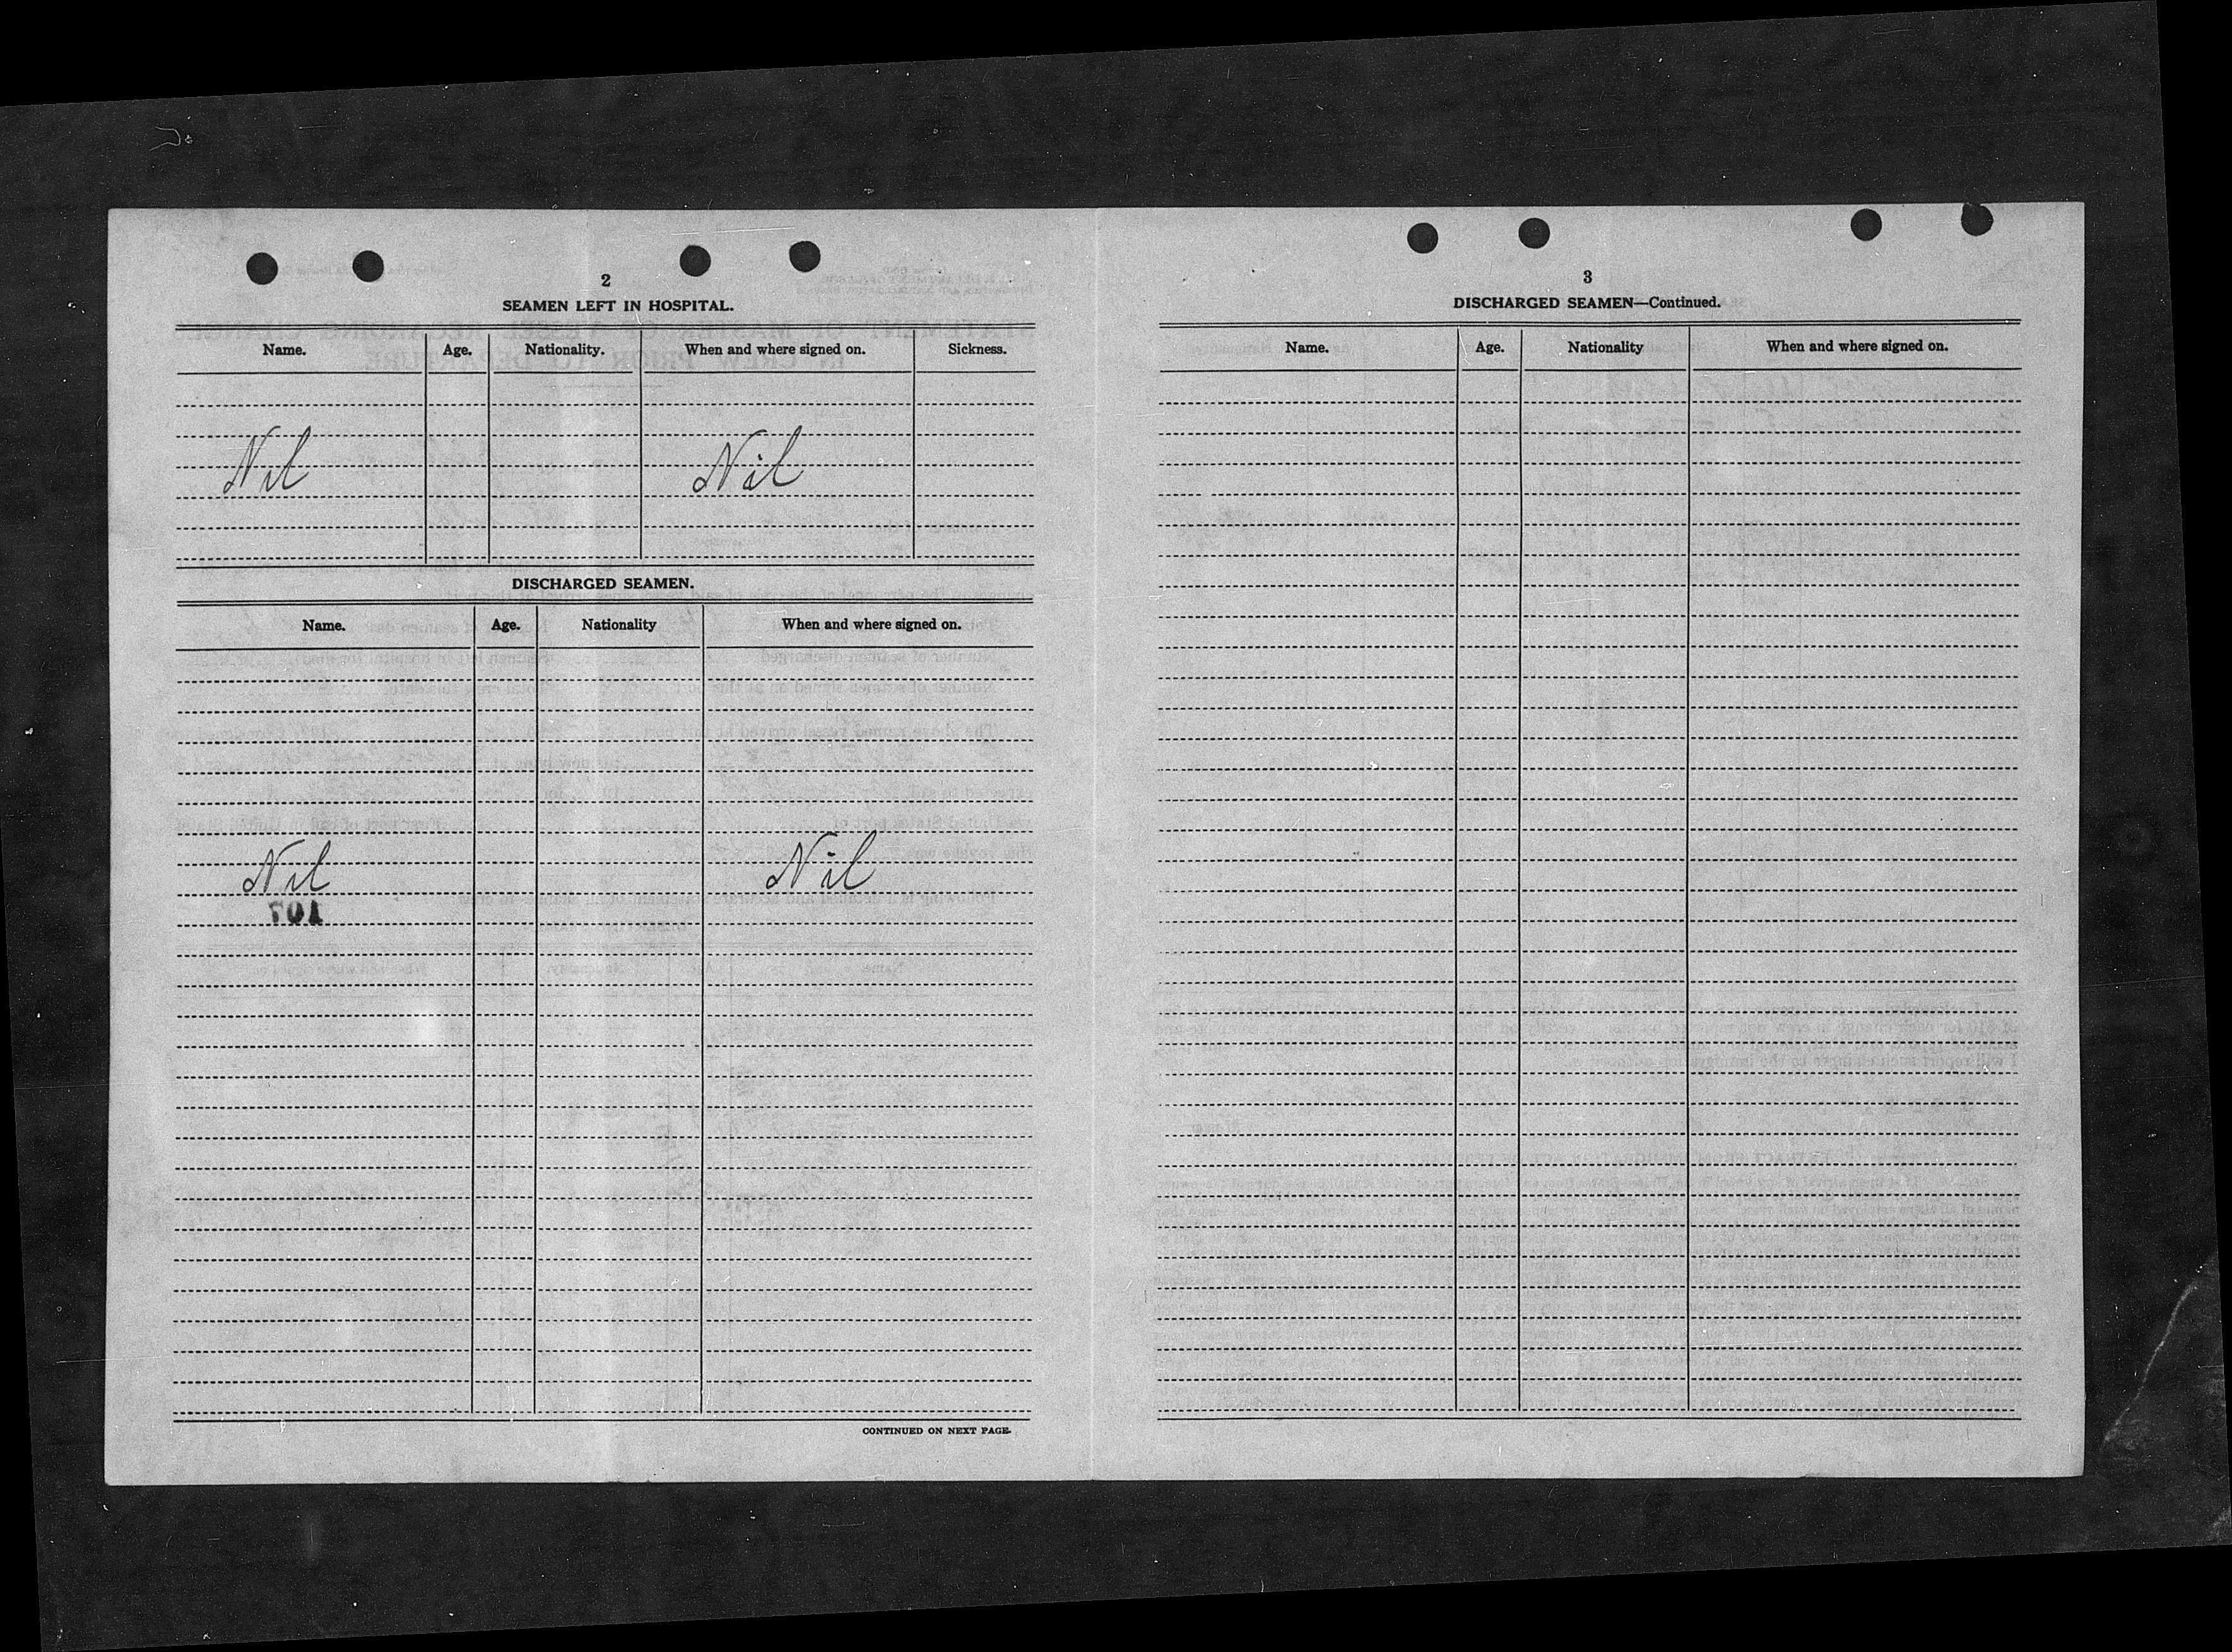 2
SEAMEN LEFT IN HOSPITAL.
Name. Age. Nationality. When and where signed on. Sickness.
Nil Nil
DISCHARGED SEAMEN.
Name. Age. Nationality When and where signed on.
Nil Nil
CONTINUED ON NEXT PAGE.
3
DISCHARGED SEAMEN—Continued.
Name. Age. Nationality When and where signed on.